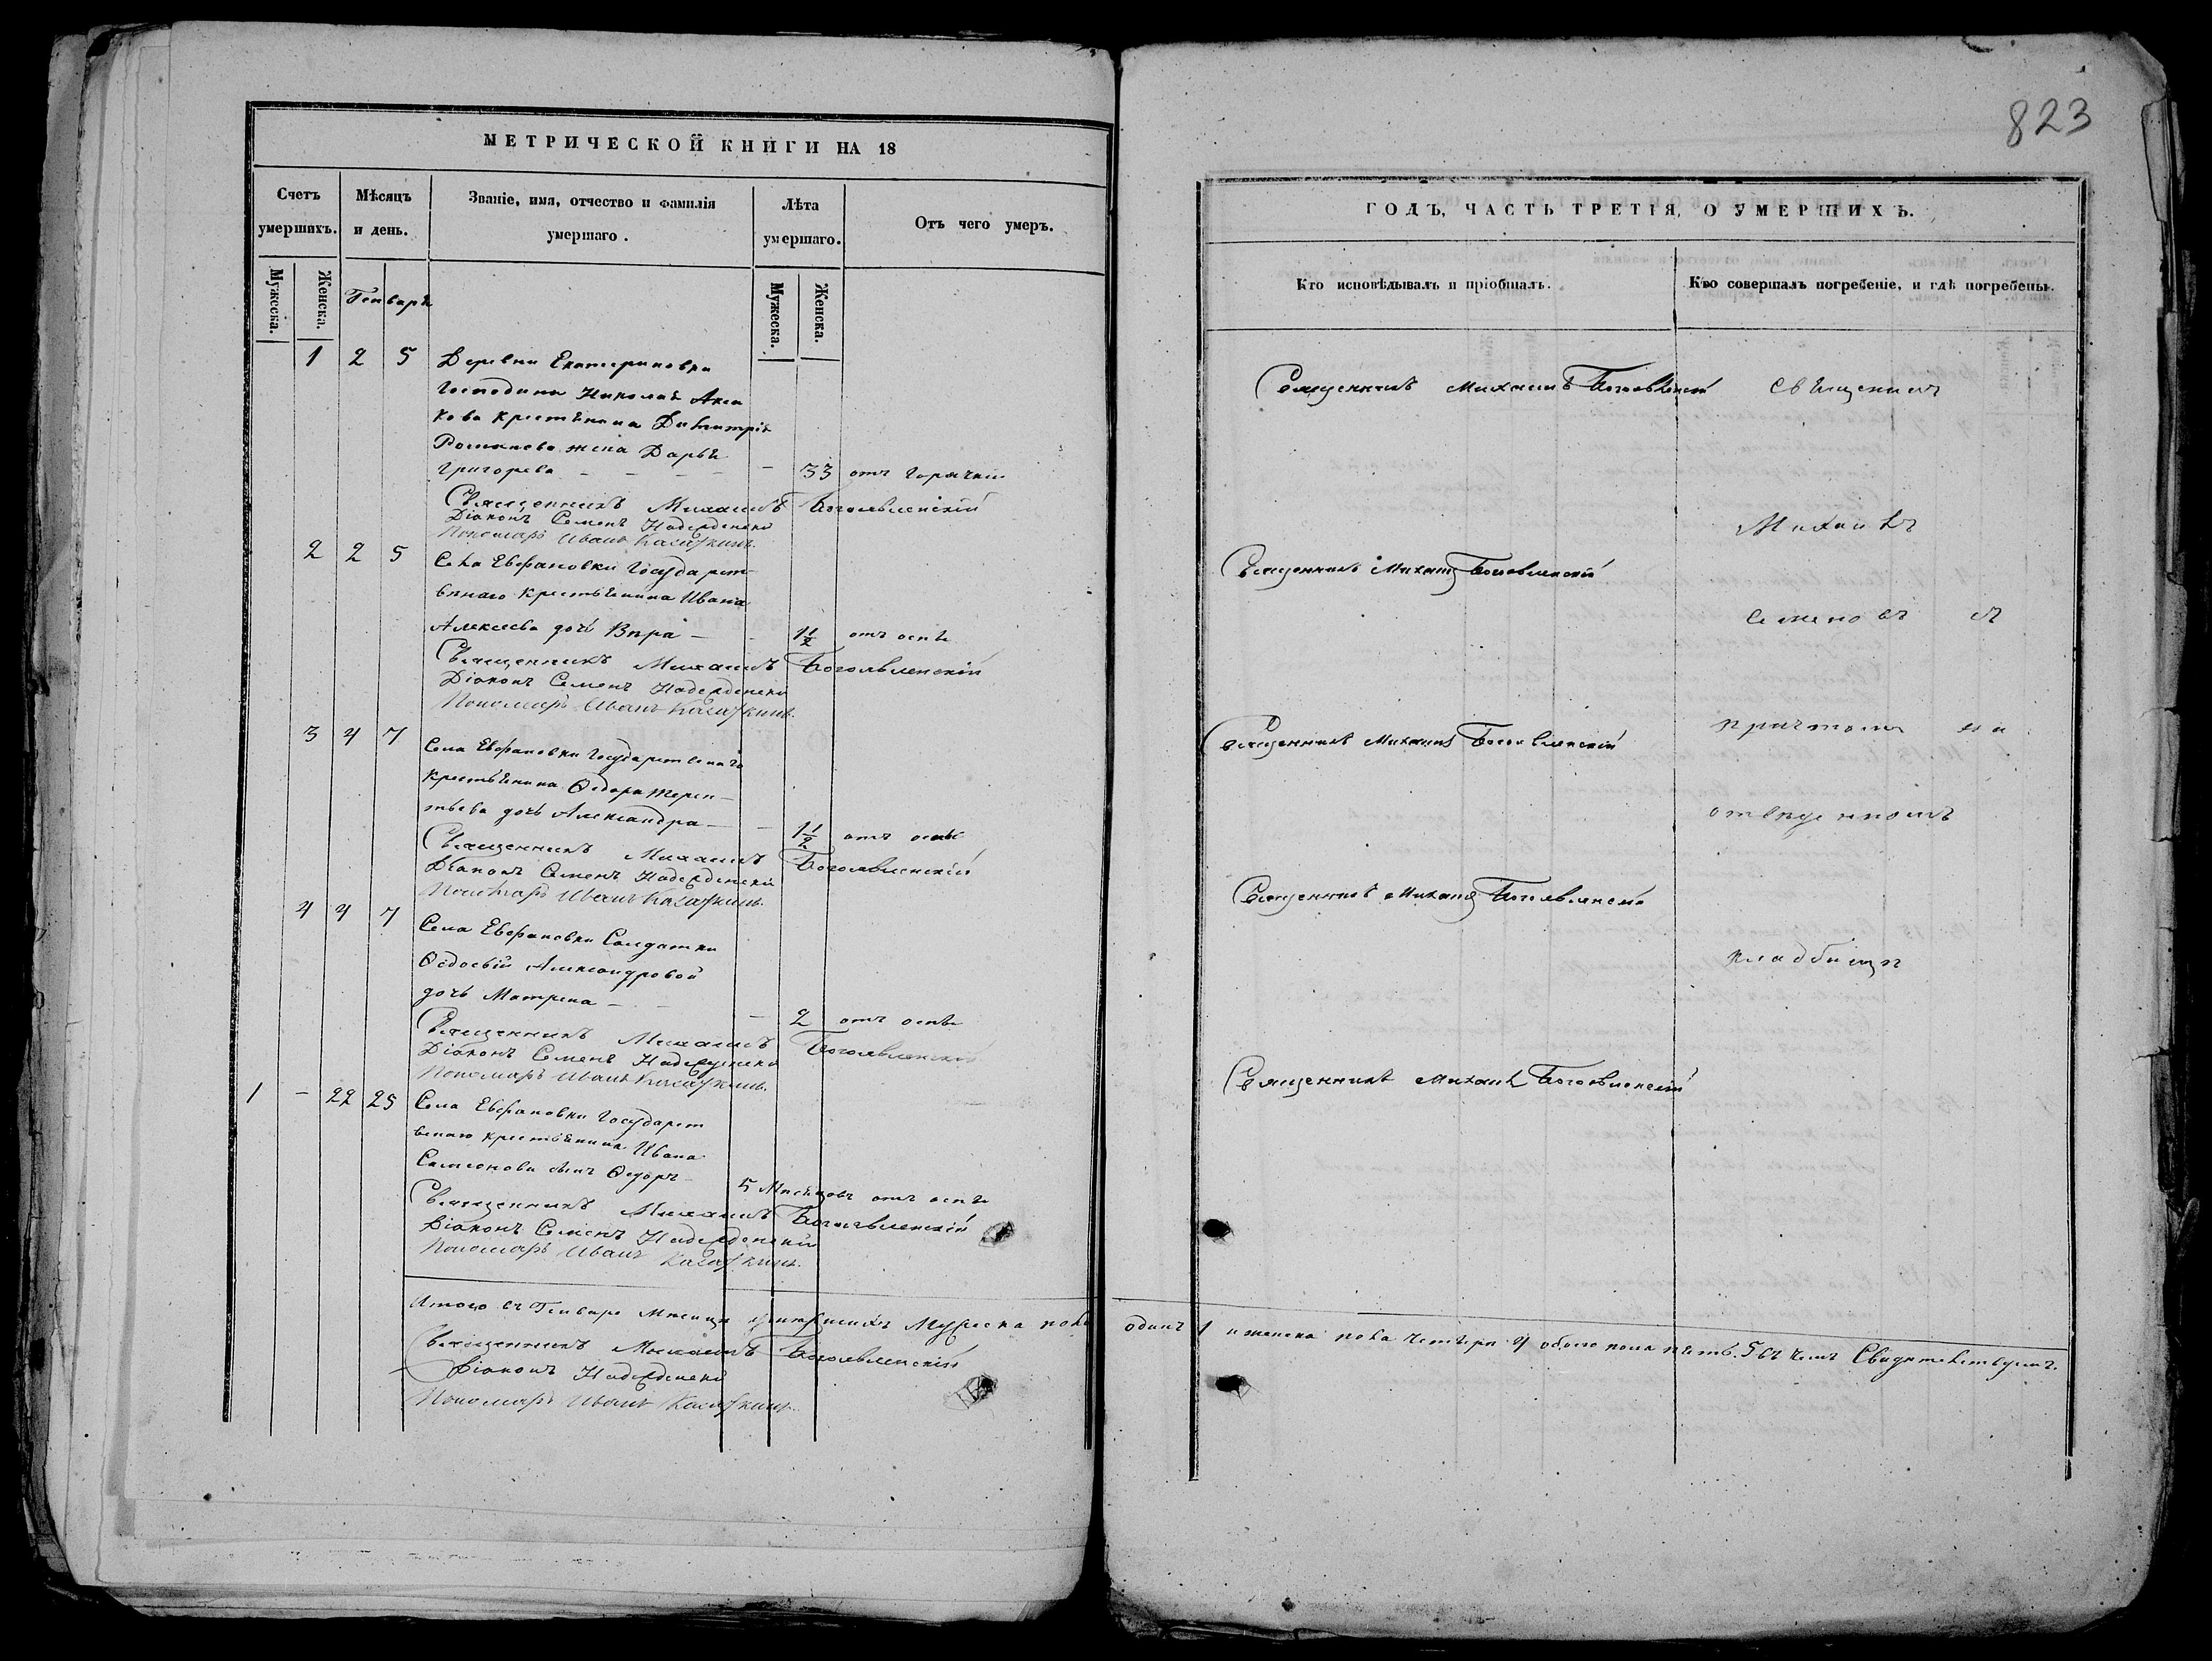 МЕТРИЧЕСКОЙ КНИГИ НА 18
Счетъ умершихъ.
Мѣсяцъ и день.
Званіе, имя, отчество и фамилія умершаго.
Лѣта умершаго.
Отъ чего умеръ.
Мужеска.
Женска.
Генваръ
Мужеска.
Женска.
1 2 5 Деревни Екатериновки
Господина Николая Акса
кова крестьянина Димитрія
Романова жена Дарья
Григорева - - - - 33 отъ горячки
Священникъ Михаилъ Богоявленскій
Діаконъ Семенъ Надежденскій
Пономарь Иванъ
2 2 5 Села Евфановки Государст-
веннаго крестьянина Ивана
Алексеева дочь Вѣра - - 1½ отъ оспы
Священникъ Михаилъ Богоявленскій
Діаконъ Семенъ Надежденскій
Пономарь Иванъ
3 4 7 Села Евфановки Государственнаго
крестьянина Ѳедора Терен-
тьева дочь Александра - - 1½ отъ оспы
Священникъ Михаилъ Богоявленскій
Діаконъ Семенъ Надежденскій
Пономарь Иванъ
4 4 7 Села Евфановки Солдатки
Ѳедосьи Александровой
дочь Матрена - - 2 отъ оспы
Священникъ Михаилъ Богоявленскій
Діаконъ Семенъ Надежденскій
Пономарь Иванъ
1 - 22 25 Села Евфановки Государст
венаго крестьянина Ивана
Самсонова сынъ Ѳедоръ 5 Мѣсяцовъ отъ оспы
Священникъ Михаилъ Богоявленскій
Діаконъ Семенъ Надежденскій
Пономарь Иванъ
Итого въ Генваре Мѣсяце умершихъ Мужеска пола
Священникъ Михаилъ Богоявленскій
Діаконъ Надежденскій
Пономарь Иванъ
823
ГОДЪ, ЧАСТЬ ТРЕТІЯ, О УМЕРШИХЪ.
Кто исповѣдывалъ и пріобщалъ.
Кто совершалъ погребеніе, и гдѣ погребены.
Священникъ Михаилъ Богоявленскій Священникъ
Михаилъ
Священникъ Михаилъ Богоявленскій
Семеновъ съ
причтомъ на
Священникъ Михаилъ Богоявленскій
отведенномъ
Священникъ Михаилъ Богоявленскій
кладбище
Священникъ Михаилъ Богоявленскій
одинъ 1 и женска пола четыри 4 обоего пола пять. 5 въ чемъ Свидетельствуемъ.